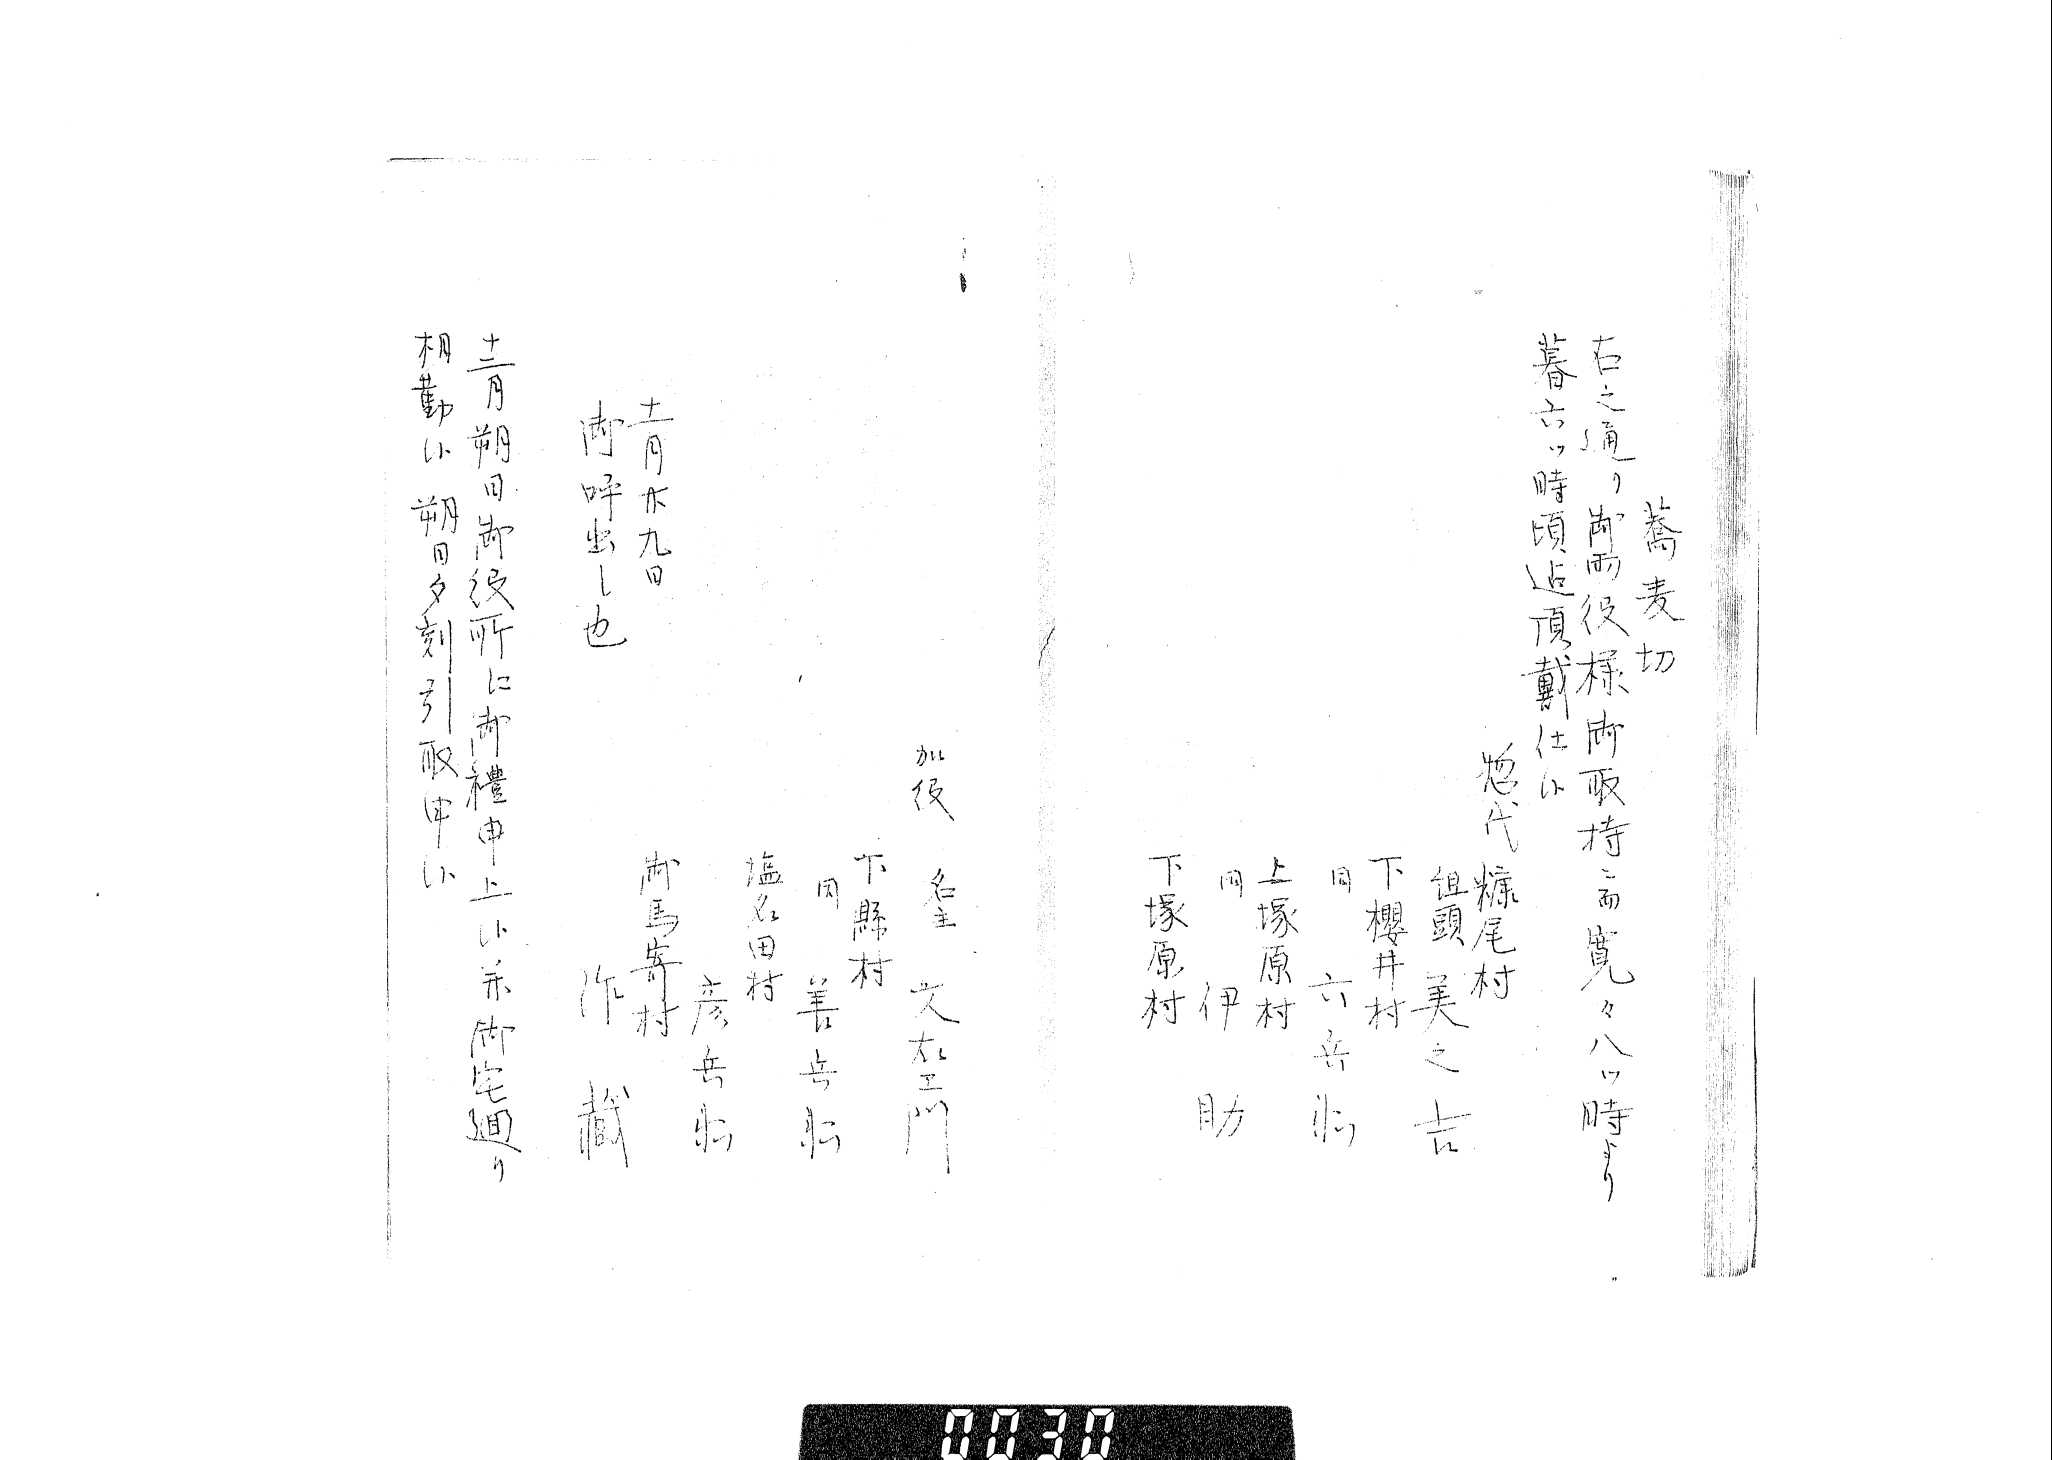 蕎麦切
右之通り御両役様御取持ニ而寛々八ツ時より
暮六ツ時頃迠頂戴仕候
惣代 糠尾村
組頭 美之吉
下櫻井村
同 六兵衛
上塚原村
同 伊助
下塚原村
加役 名主 文左エ門
下縣村
同 善兵衛
塩名田村
彦兵衛
御馬寄村
作藏
十一月廿九日
御呼出し也
十二月朔日御役所に御禮申上候并御宅廻り
相勤候 朔日夕刻引取申候
0030